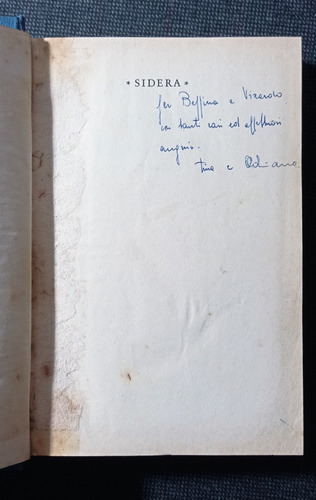 * SIDERA *
Per Bettina e Vicardo
con tanti cari ed affettuosi
auguri.
Tina e Adriano